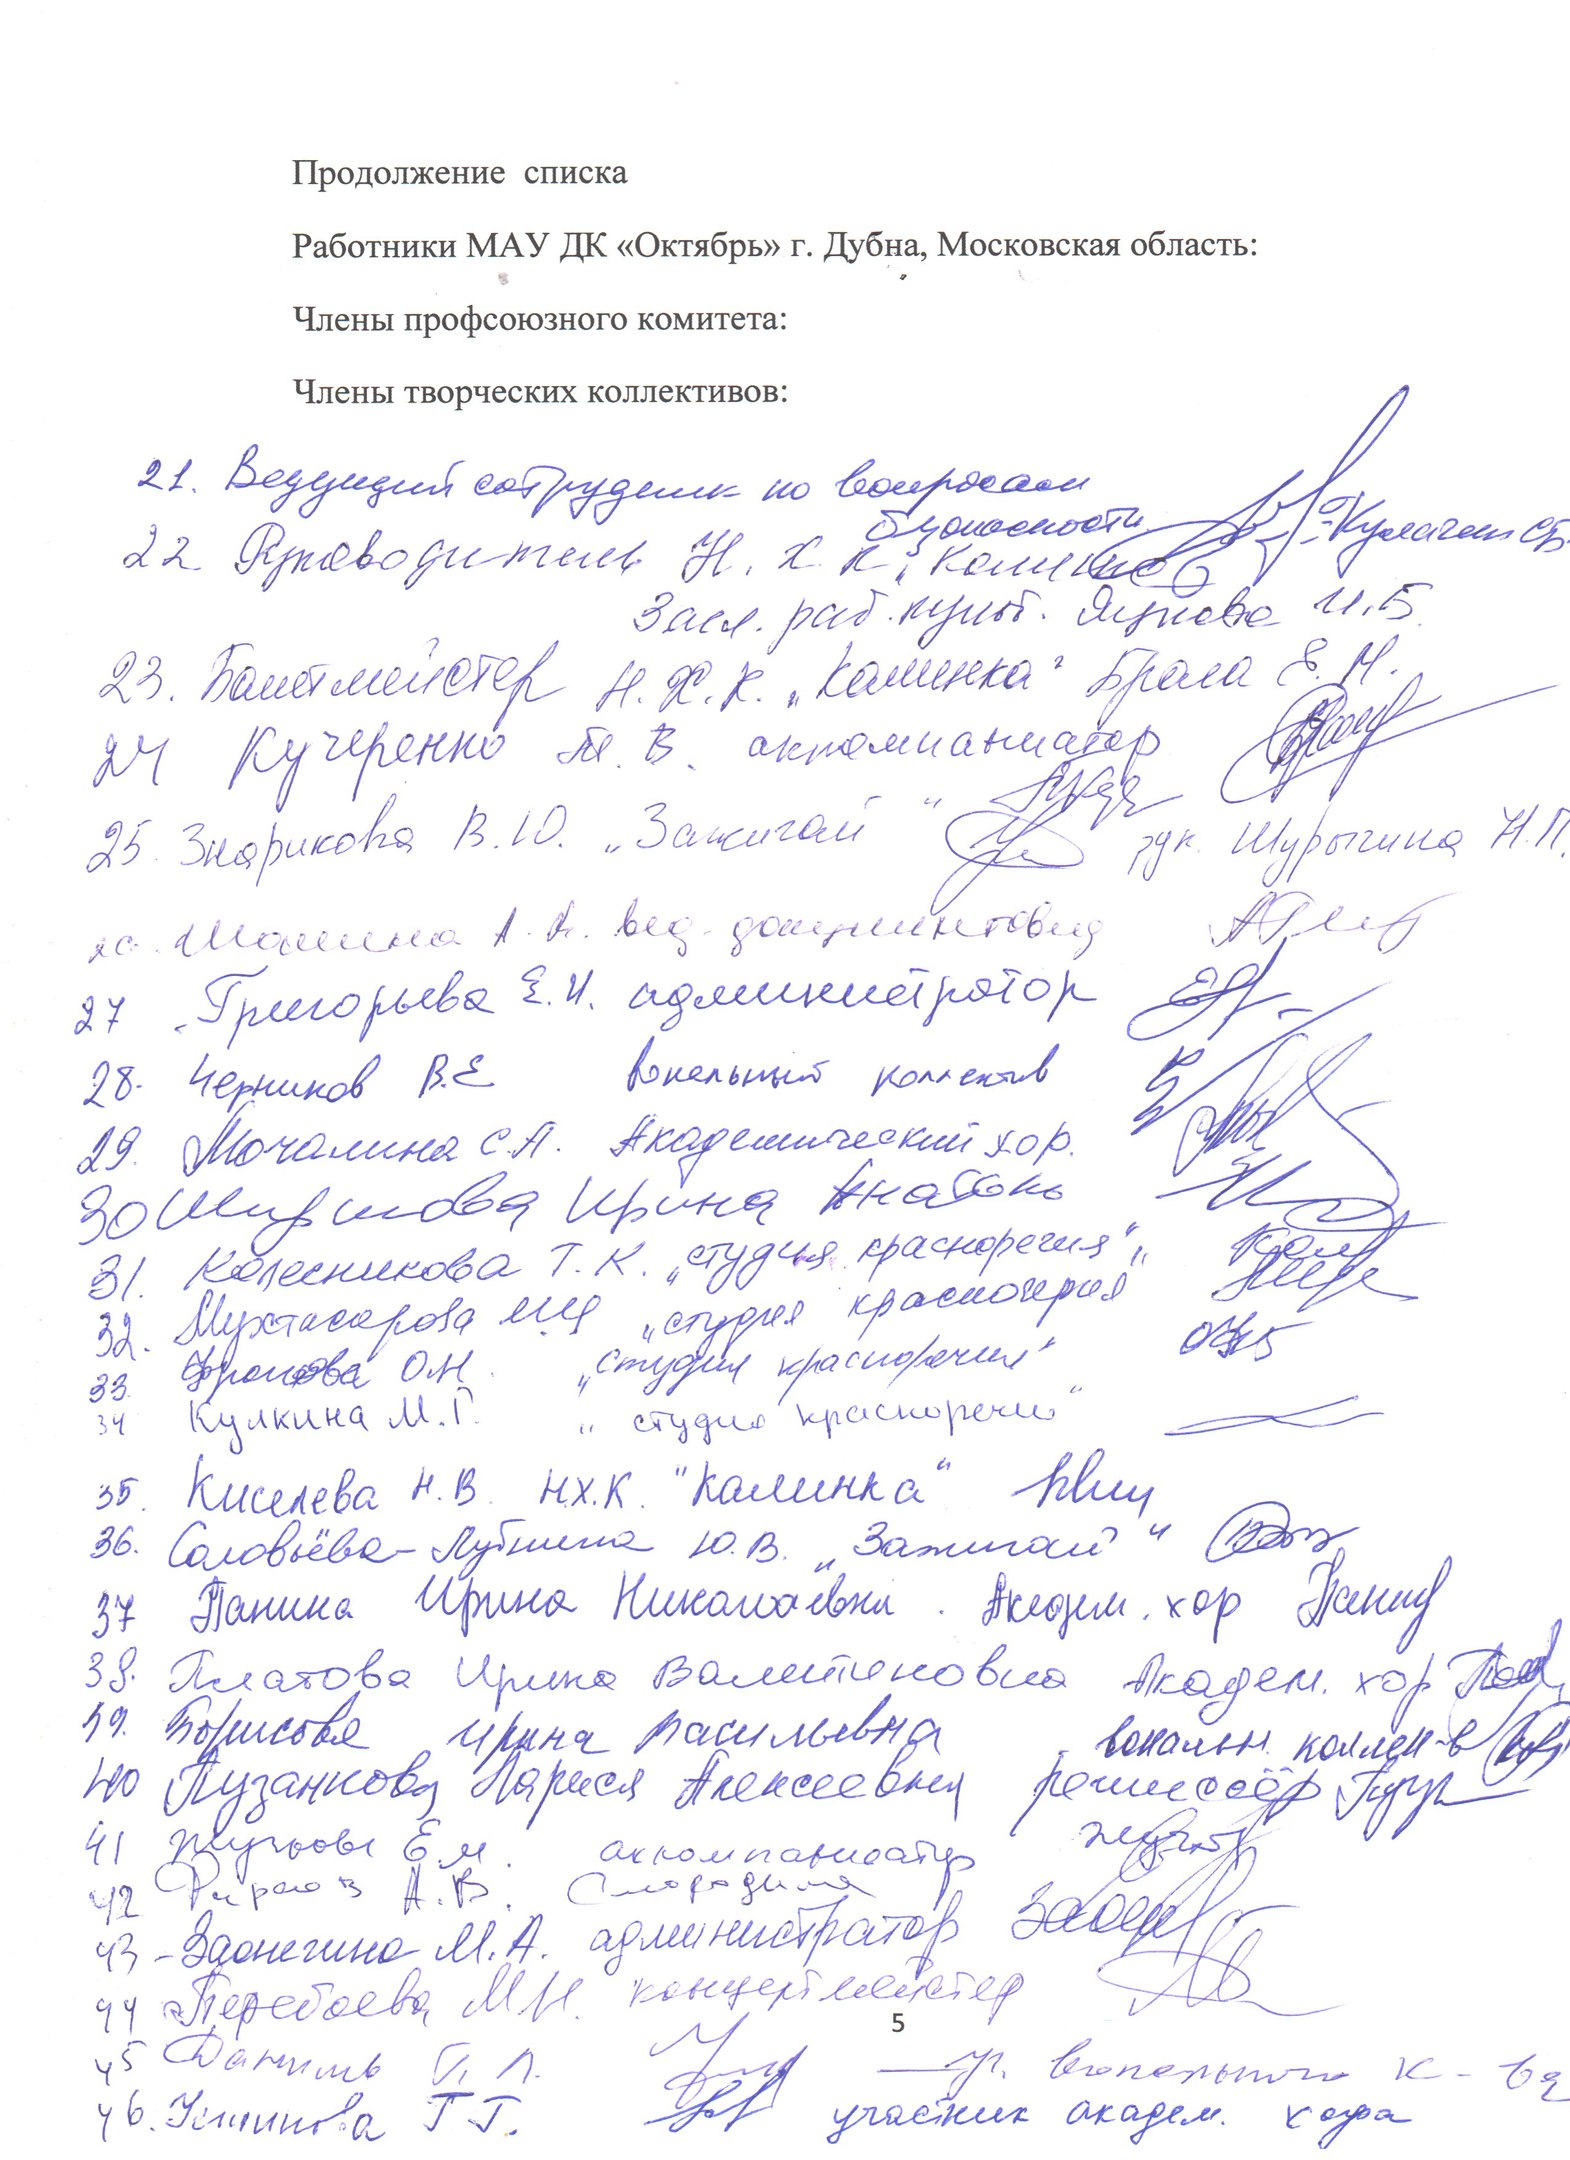 Продолжение списка
Работники МАУ ДК «Октябрь» г. Дубна, Московская область:
Члены профсоюзного комитета:
Члены творческих коллективов:
21. Ведущий сотрудник по вопросам
безопасности
22. Руководитель Н. Х. К. „Калинка"
Засл. раб. культ. И.Б.
23. Балетмейстер Н. Х. К. „Калинка" Брала Е. М.
24 Кучеренко Т. В. аккомпаниатор
25. В. Ю. „Зажигай" рук. Шурыгина Н.П.
26. Шалина А. А. вед. документовед
27 Григорьева Е. И. администратор
28. Черников В.Е вокальный коллектив
29. Мочалина С.А. Академический хор.
30 Ширшова Ирина
31. Колесникова Т. К. „студия красноречия"
32. „студия красноречия"
33. О.Н. „студия красноречия"
34 Кулкина М. Г. „студия красноречия"
35. Киселева Н. В. Н.Х.К. "Калинка"
36. Соловьёва- Ю. В. „Зажигай"
37 Панина Ирина Николаевна. Академ. хор
38. Платова Ирина Валентиновна Академ. хор
39. Борисова Ирина Васильевна вокальн. коллек-в
40 Пузанкова Лариса Алексеевна режиссёр
41 Е. М. аккомпаниатор
42 А. В.
43 - Заонегина М. А. администратор
44 Перебоева М Н. концертмейстер
5
45 вокального к-ва
46. Устинова Г Г. участник академ. хора